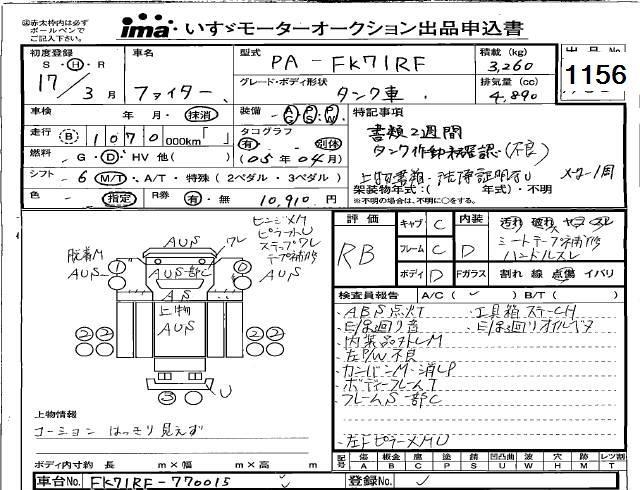 ㊟赤太枠内は必ず
ボールペンで
ご記入下さい。
ima いすゞモーターオークション出品申込書
初度登録
S・H・R
17/3月
車名
ファイター
型式
PA-FK71RF
グレード・ボディ形状
タンク車
積載 (kg)
3,260
排気量 (cc)
4,890
出品No
1156
車検 年 月・抹消
装備 AC PS PW
特記事項
書類2週間
走行 B 1070 000km「 」
タコグラフ
有・別体
燃料 -G・D・HV 他( )
(05年04月)
シフト -6 M/T・A/T・特殊(2ペダル・3ペダル)
メーター1周
色 - 指定
R券 有・無 10,910円
架装物年式:( 年式)・不明
※不明の場合は、不明に○をする。
脱着M
AUS
AUS
ワレ
AUS一部C
AS
上物
AUS
2 2
2 2
3
U
評価
RB
キャブ C
フレーム C
ボディ D
内装 D
Fガラス
汚れ 破れ ヤコゲ スレ
シートテープ補修
ハンドルスレ
割れ 線 点傷 イバリ
検査員報告 A/C( ✓ ) B/T( )
・ABS点灯
・工具箱ステーCH
・E/g廻り音
・E/g廻りオイルベタ
・内装品欠品M
・左P/W不良
・カンバンM・消しP
・ボディーフレームT
・フレームS一部C
・左ドピラーXMU
上物情報
コーション はっきり見えず
ボディ内寸約 長 m×幅 m×高 m
記号 傷A 板金B 腐C 塗P 錆S 凹凸曲U 波W 穴H 跡M レツ割T
車台No. FK71RF-770015
登録No. ✓